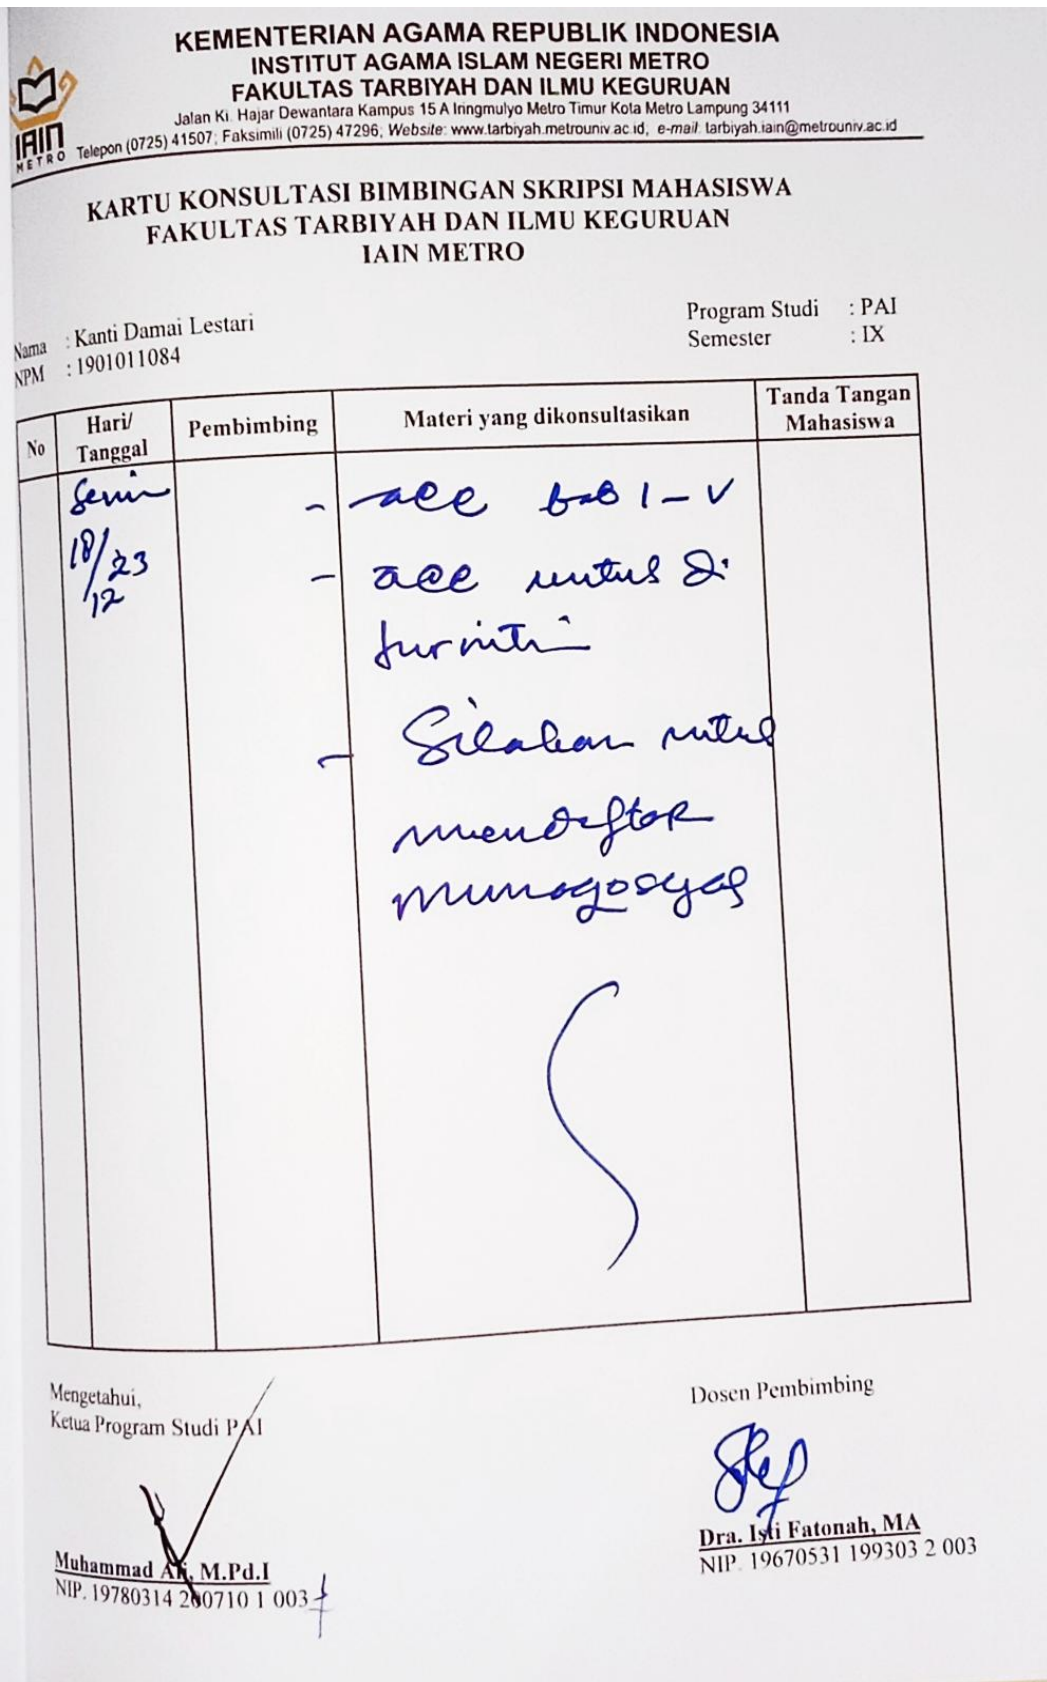 KEMENTERIAN AGAMA REPUBLIK INDONESIA
INSTITUT AGAMA ISLAM NEGERI METRO
FAKULTAS TARBIYAH DAN ILMU KEGURUAN
Jalan Ki. Hajar Dewantara Kampus 15 A Iringmulyo Metro Timur Kota Metro Lampung 34111
Telepon (0725) 41507; Faksimili (0725) 47296; Website: www.tarbiyah.metrouniv.ac.id; e-mail: tarbiyah.iain@metrouniv.ac.id
IAIN
METRO
KARTU KONSULTASI BIMBINGAN SKRIPSI MAHASISWA
FAKULTAS TARBIYAH DAN ILMU KEGURUAN
IAIN METRO
Nama : Kanti Damai Lestari
NPM : 1901011084
Program Studi : PAI
Semester : IX
No
Hari/
Tanggal
Pembimbing
Materi yang dikonsultasikan
Tanda Tangan
Mahasiswa
Senin
18/12 23
- acc bab I - V
- acc untuk di
turnitin
- Silahkan untuk
mendaftar
munaqosyah
Mengetahui,
Ketua Program Studi PAI
Muhammad Ali, M.Pd.I
NIP. 19780314 200710 1 003
Dosen Pembimbing
Dra. Isti Fatonah, MA
NIP. 19670531 199303 2 003